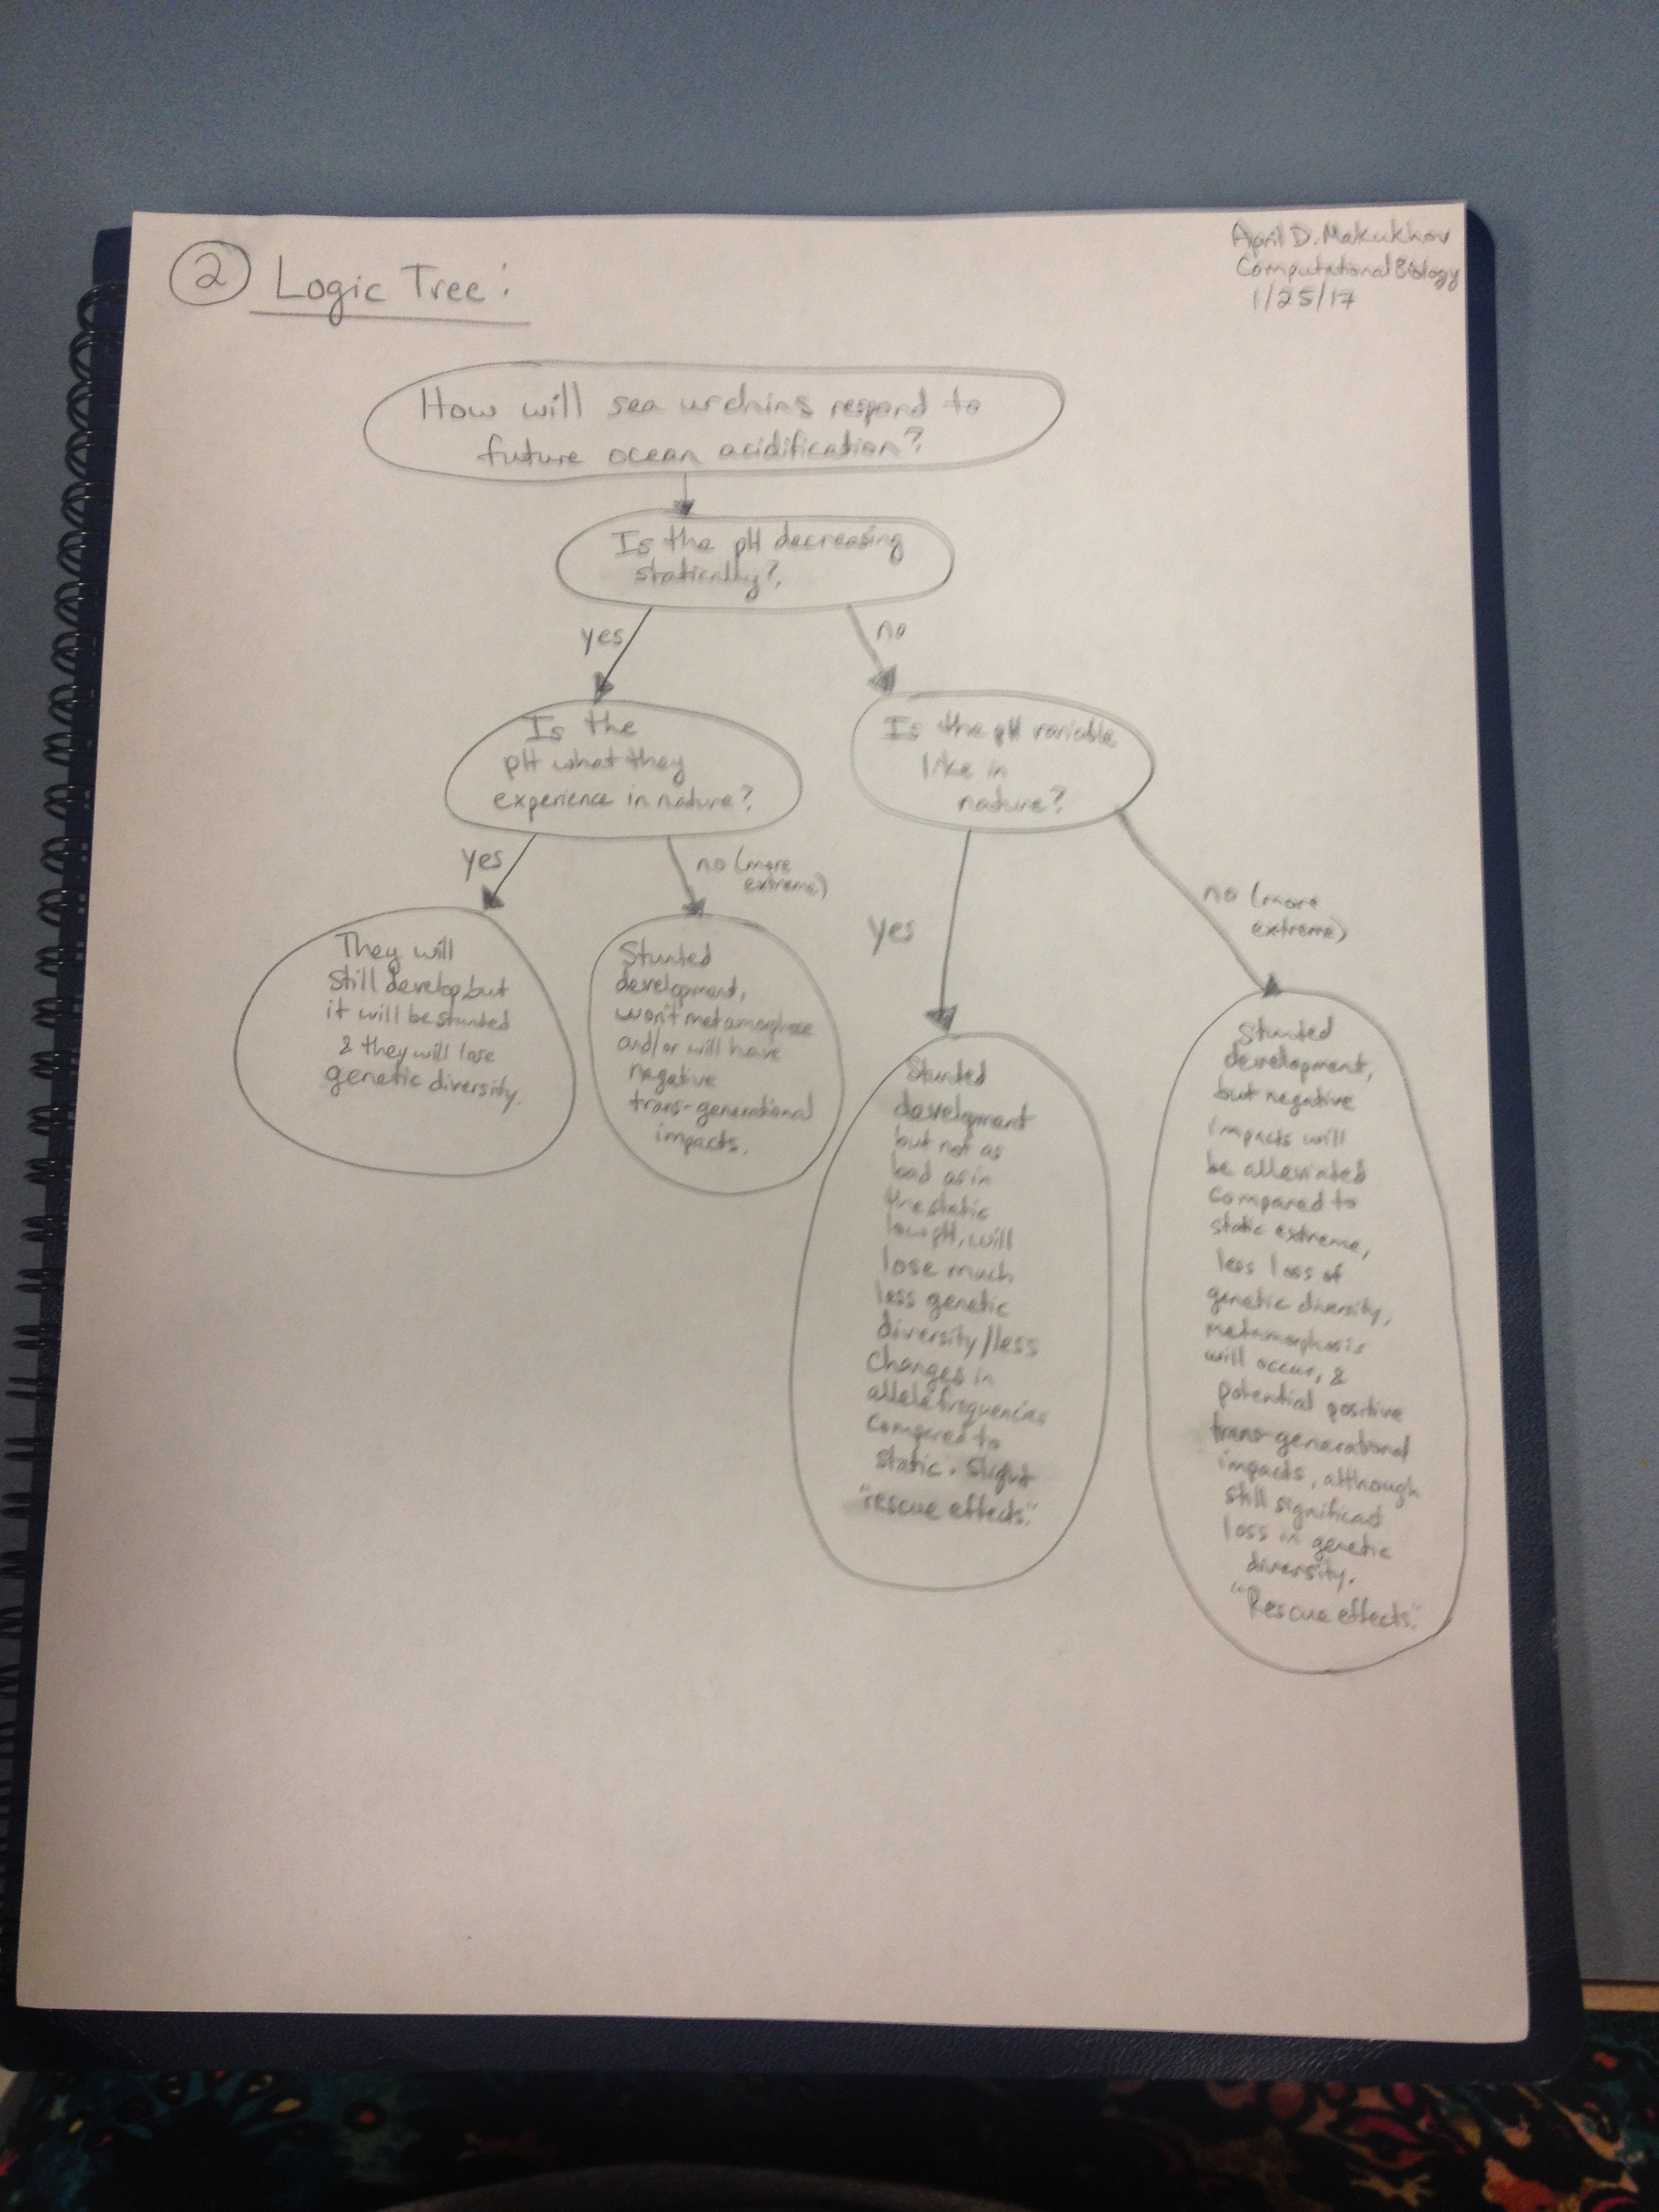 ② Logic Tree:
April D. Makukhov
Computational Biology
1/25/17
How will sea urchins respond to
future ocean acidification?
Is the pH decreasing
statically?
yes
no
Is the
pH what they
experience in nature?
Is the pH variable
like in
nature?
yes
no (more
extreme)
yes
no (more
extreme)
They will
still develop, but
it will be stunted
& they will lose
genetic diversity.
Stunted
development,
won't metamorphose
and/or will have
negative
trans-generational
impacts.
Stunted
development
but not as
bad as in
the static
low pH, will
lose much
less genetic
diversity/less
changes in
allele frequencies
compared to
static. Slight
"rescue effects."
Stunted
development,
but negative
impacts will
be alleviated
compared to
static extreme,
less loss of
genetic diversity,
metamorphosis
will occur, &
potential positive
trans-generational
impacts, although
still significant
loss in genetic
diversity.
"Rescue effects."